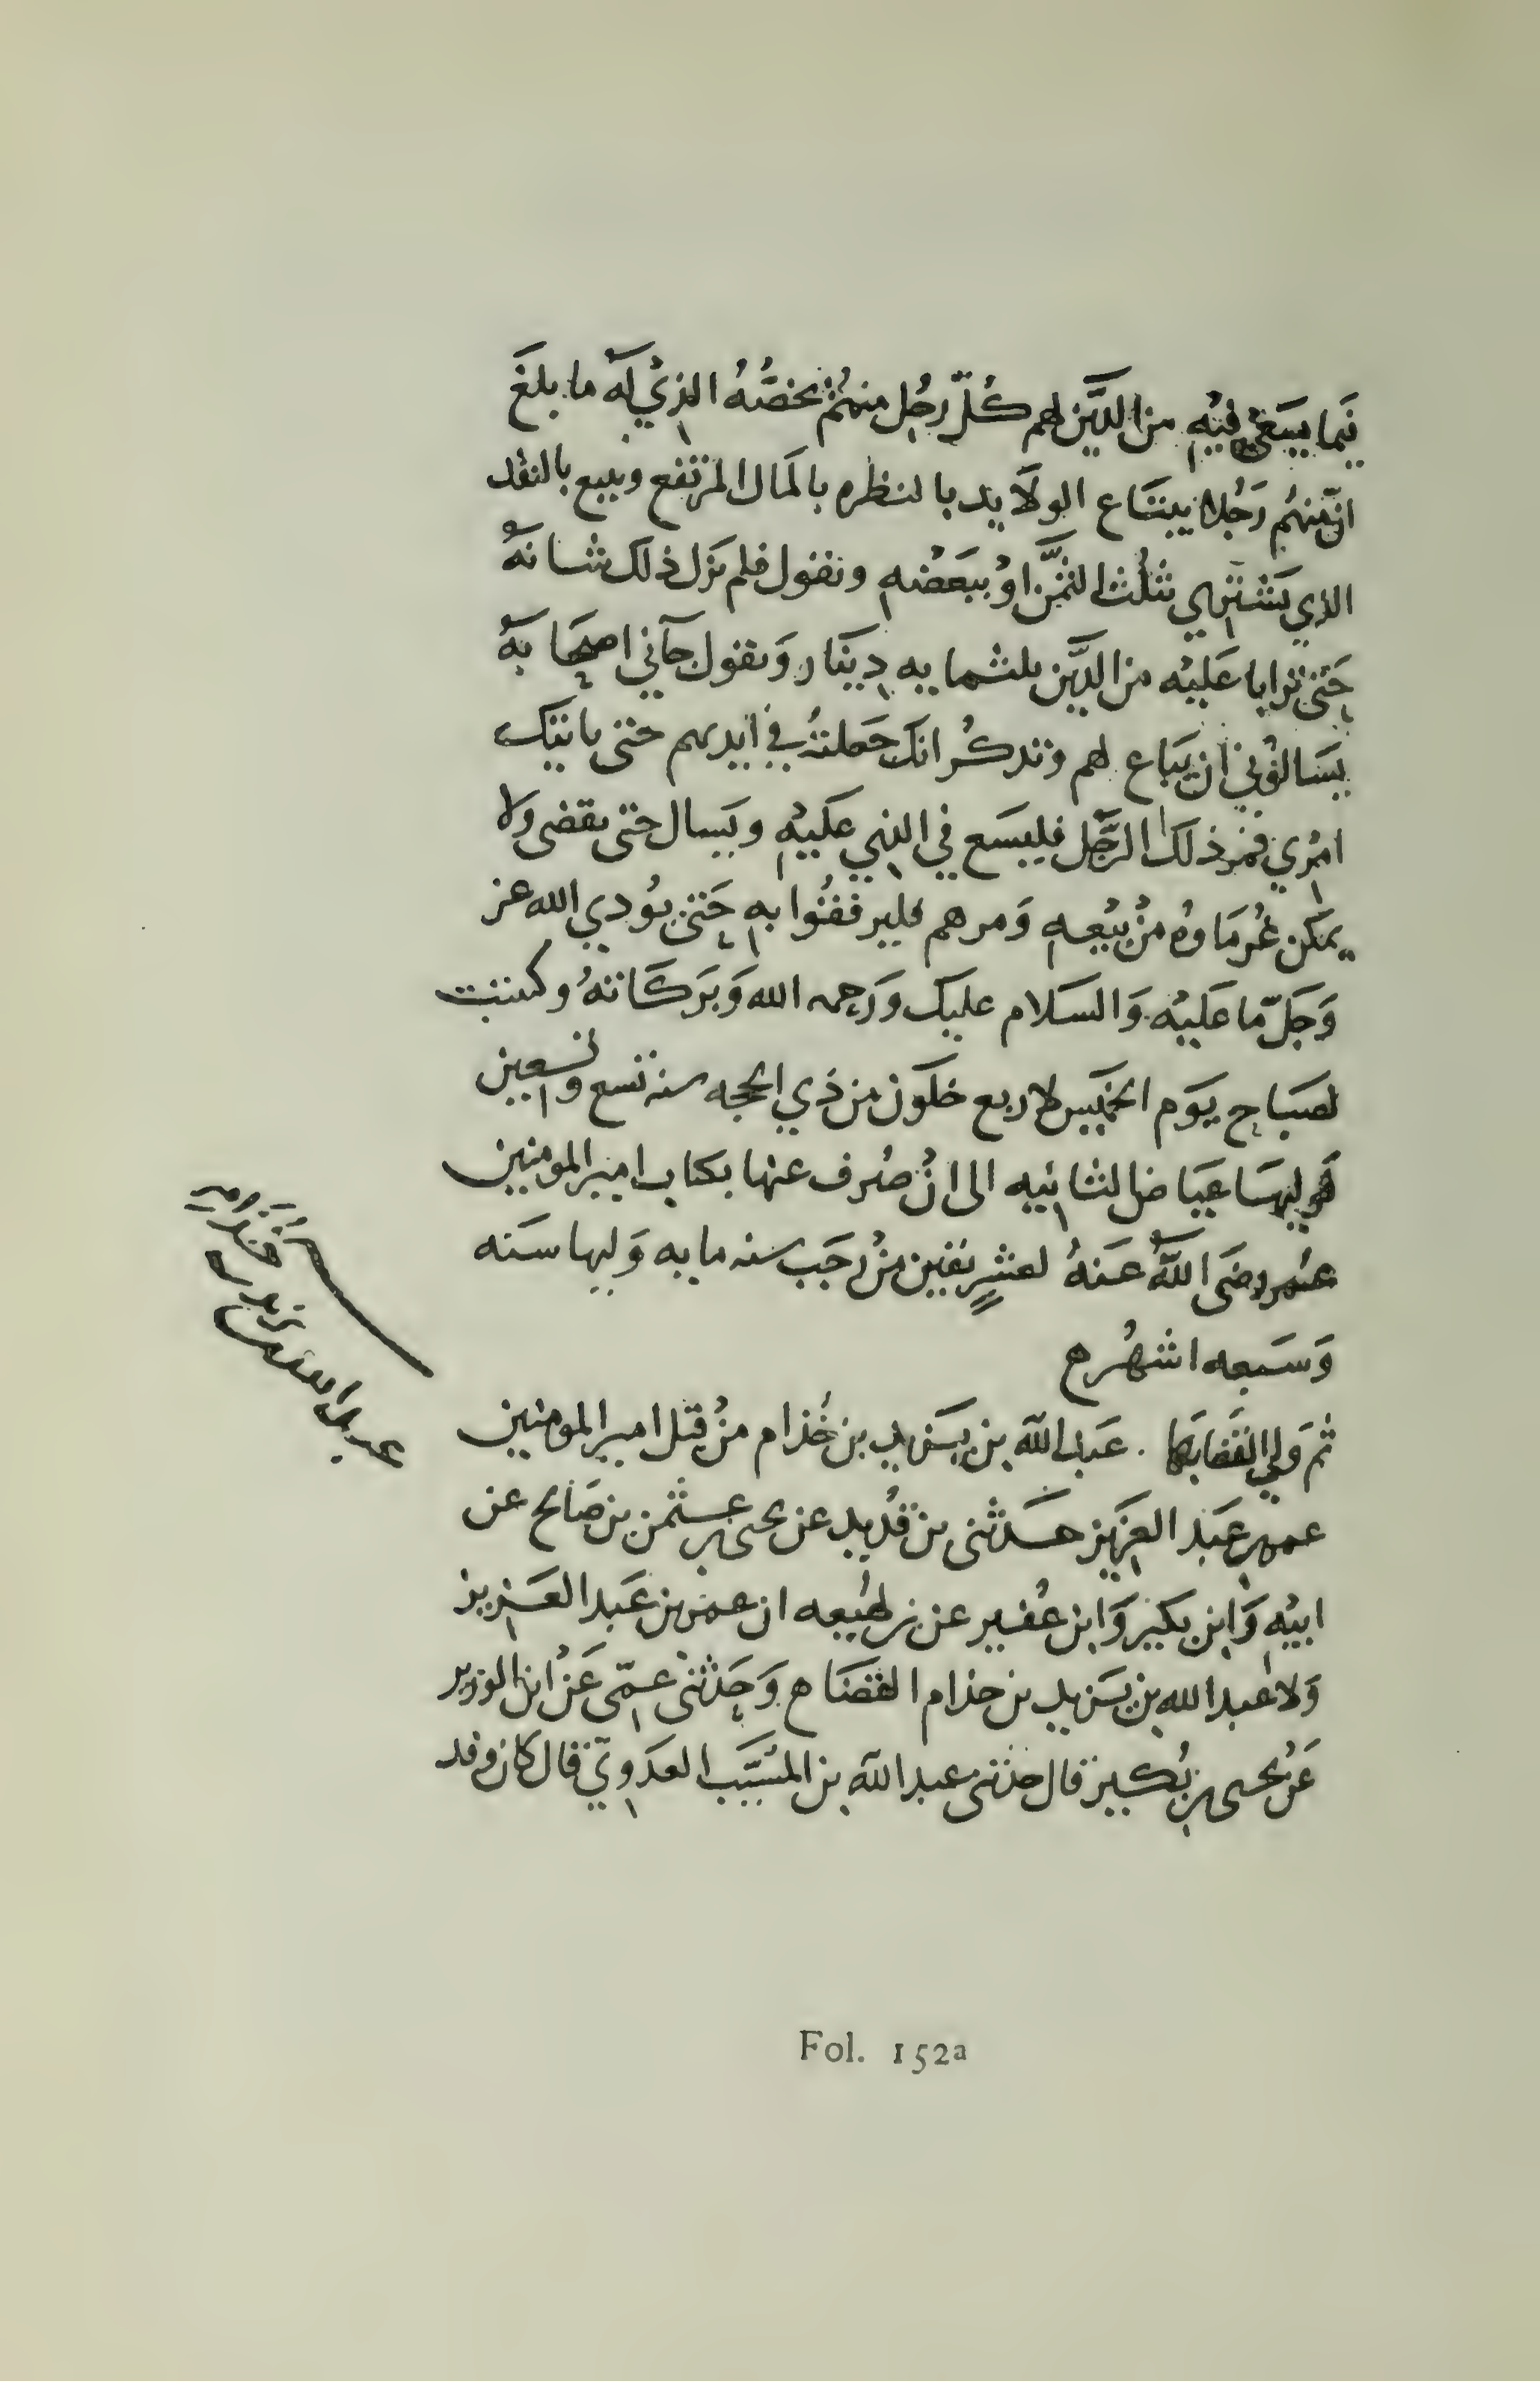 فيما يسعى فيه من الدَّين لهم كُلّ رجُل منهُمْ بحصَّتُهُ الذيْ لَهُ ما بلغَ
انّ منهُم رَجُلا يبتَاع الولَايد بالنظره بالمَال المرتفع ويبيع بالنقد
الذي يَشتَري بثُلُث الثمَّن اوْ ببَعْضهِ وتقول فلم يزَل ذلك شانهُ
حَتى تَرايا عَليْه من الدَّين ثلثمايه دِينَار وَتقول جآني اصحَابهُ
يَسَالُوْني انْ يُبَاع لهم وتذكُر انك جَعَلتهُ في ايديهم حتى ياتيك
امْري فمُر ذلَك الرَّجُل فليسَع في الذي عَليْهِ ويَسال حتى يقضى ولا
يمَكن غُرمَاوهُ منْ بيْعهِ وَمرهم فليرفقُوا بهِ حَتى يُودي الله عز
وَجَلّ ما عَليْه وَالسَلام عليك وَرَحمه الله وَبَركَاتهُ وكتبت
لصَبَاح يَوم الخمَيس لاربع خلَون من ذي الحجه سنه تسع وتسعين
فوليهَا عيَاض الثانيه الى انْ صُرف عنها بكتاب امير المومنين
عمر رضَى اللّهُ عَنهُ لعَشرٍ بقين منْ رجَب سنه مايه وَليها سَنه
وَسَبعه اشهُر ه
ثم وَلي القضَا بهَا . عَبد اللّه بن يَزيد بن خُذام منْ قبَل امير المومنين
عمر بن عَبد العزَيز حَدثنى بن قُديد عن يحيى بن عثمن بن صَالح عن
ابيْهِ وَابن بكَير وَابن عُفير عن بن لهْيعه ان عمر بن عَبد العَزيز
وَلا عبد الله بن يَزيد بن خذام القضَا ه وَحَدثنيْ عمّى عَنْ ابن الوزير
عَنْ يحيى بن بُكَير قال حدثنى عبد اللّه بن المسَيَّب العدَويّ قال كان وفد
عبد الله بن
يزيد بن
Fol. 152a